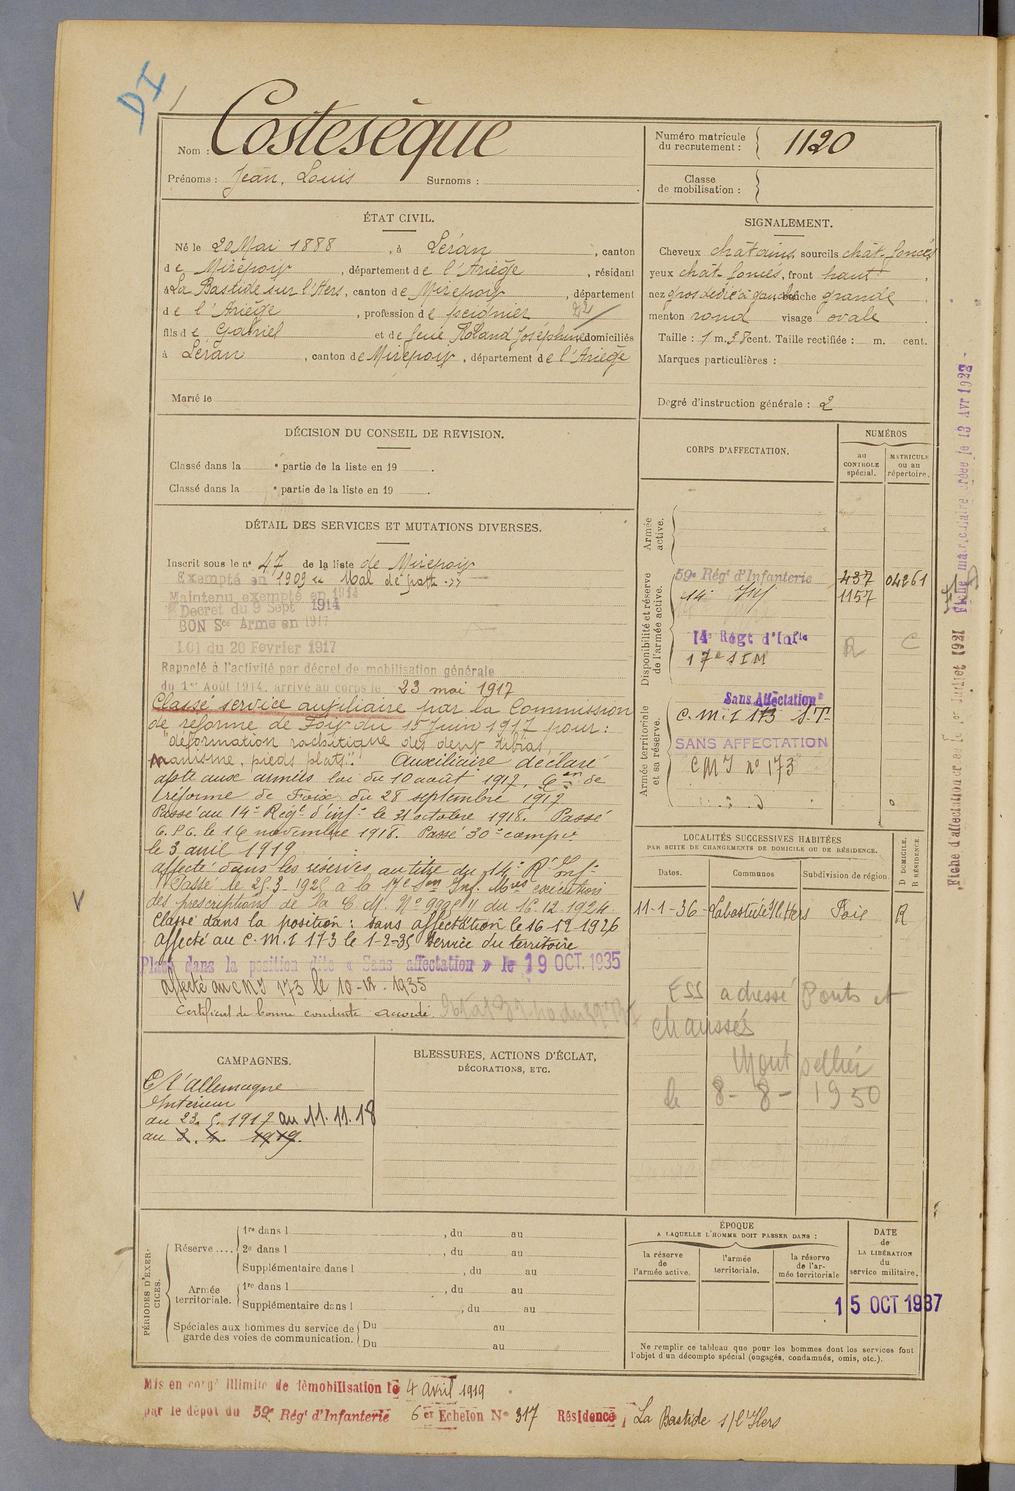 DI
Nom : Costesèque
Prénoms : Jean, Louis Surnoms :
Numéro matricule du recrutement : 1120
Classe de mobilisation :
ÉTAT CIVIL.
Né le 20 Mai 1888, à Léran, canton
de Mirepoix, département de l'Ariège, résidant
à La Bastide sur l'Hers, canton de Mirepoix, département
de l'Ariège, profession de peignier 22
fils de Gabriel et de feue Roland Joséphine domiciliés
à Léran, canton de Mirepoix, département de l'Ariège
Marié le
SIGNALEMENT.
Cheveux châtains, sourcils chât. foncés
yeux chât. foncés, front haut,
nez gros dévié à gauche bouche grande
menton rond visage ovale
Taille : 1 m. cent. Taille rectifiée : m. cent.
Marques particulières :
Degré d'instruction générale : 2
DÉCISION DU CONSEIL DE REVISION.
Classé dans la e partie de la liste en 19 .
Classé dans la e partie de la liste en 19 .
DÉTAIL DES SERVICES ET MUTATIONS DIVERSES.
Inscrit sous le n° 47 de la liste de Mirepoix
Exempté en 1909 "
Maintenu exempté en 1914
Décret du 9 Sept 1914
BON Sce Armé en 1917
LOI du 20 Fevrier 1917
Rappelé à l'activité par décret de mobilisation générale
du 1er Août 1914, arrivé au corps le 23 mai 1917
Classé service auxiliaire par la Commission
de réforme de Foix du 15 Juin 1917 pour :
"déformation rachitique des deux tibias,
nanisme, pieds plats." Auxiliaire déclaré
apte aux armées loi du 10 août 1917, Con de
réforme de Foix du 28 septembre 1917
Passé au 14e Régt d'inf. le 21 octobre 1918. Passé
C.P.G. le 16 novembre 1918. Passé 30e comp.
le 3 avril 1919.
affecté dans les réserves au titre du 14e R. Inf.
Passé le 25.3.1925 à la 17e Son Inf. exécution
des prescriptions de la C.M. N° du 16.12.1924
Classé dans la position : sans affectation le 16 12 1926
Affecté au C.M.I 173 le 1-2-35 Service du territoire
Placé dans la position dite « Sans affectation » le 19 OCT. 1935
affecté au C M I 173 le 10-12-1935
Certificat de bonne conduite accordé.
CORPS D'AFFECTATION.
NUMÉROS
au CONTROLE spécial.
MATRICULE ou au répertoire.
Armée active.
Disponibilité et réserve de l'armée active.
59e Régt d'Infanterie 437 04261
14e Inf 1157
14e Régt d'Infie R C
17e S I M
Armée territoriale et sa réserve.
Sans Affectation
C.M.I 173 S.T.
SANS AFFECTATION
C M I n° 173
LOCALITÉS SUCCESSIVES HABITÉES
PAR SUITE DE CHANGEMENTS DE DOMICILE OU DE RÉSIDENCE.
D DOMICILE, R RÉSIDENCE
Dates. Communes Subdivision de région.
11-1-36 - Labastide s/l'Hers Foix R
ESS adressé Ponts et
chaussés
Montpellier
le 8-8-1950
CAMPAGNES.
C/ l'Allemagne
Intérieur
du 23.5.1917 au 11.11.18
au 3. 4. 1919.
BLESSURES, ACTIONS D'ÉCLAT,
DÉCORATIONS, ETC.
PÉRIODES D'EXERCICES.
Réserve....
1re dans l , du au
2e dans l , du au
Supplémentaire dans l , du au
Armée territoriale.
1re dans l , du au
Supplémentaire dans l , du au
Spéciales aux hommes du service de garde des voies de communication.
Du au
Du au
ÉPOQUE
A LAQUELLE L'HOMME DOIT PASSER DANS :
la réserve de l'armée active.
l'armée territoriale.
la réserve de l'armée territoriale
DATE de LA LIBÉRATION du service militaire.
15 OCT 1937
Ne remplir ce tableau que pour les hommes dont les services font
l'objet d'un décompte spécial (engagés, condamnés, omis, etc.).
Mis en congé illimité de démobilisation le 4 avril 1919.
par le dépôt du 59e Régt d'Infanterie 6e Echelon N° 317 Résidence, La Bastide s/ l'Hers
Fiche d'affectation créée le Juillet 1921 Fiche matriculaire créée le 13 Avr 1928